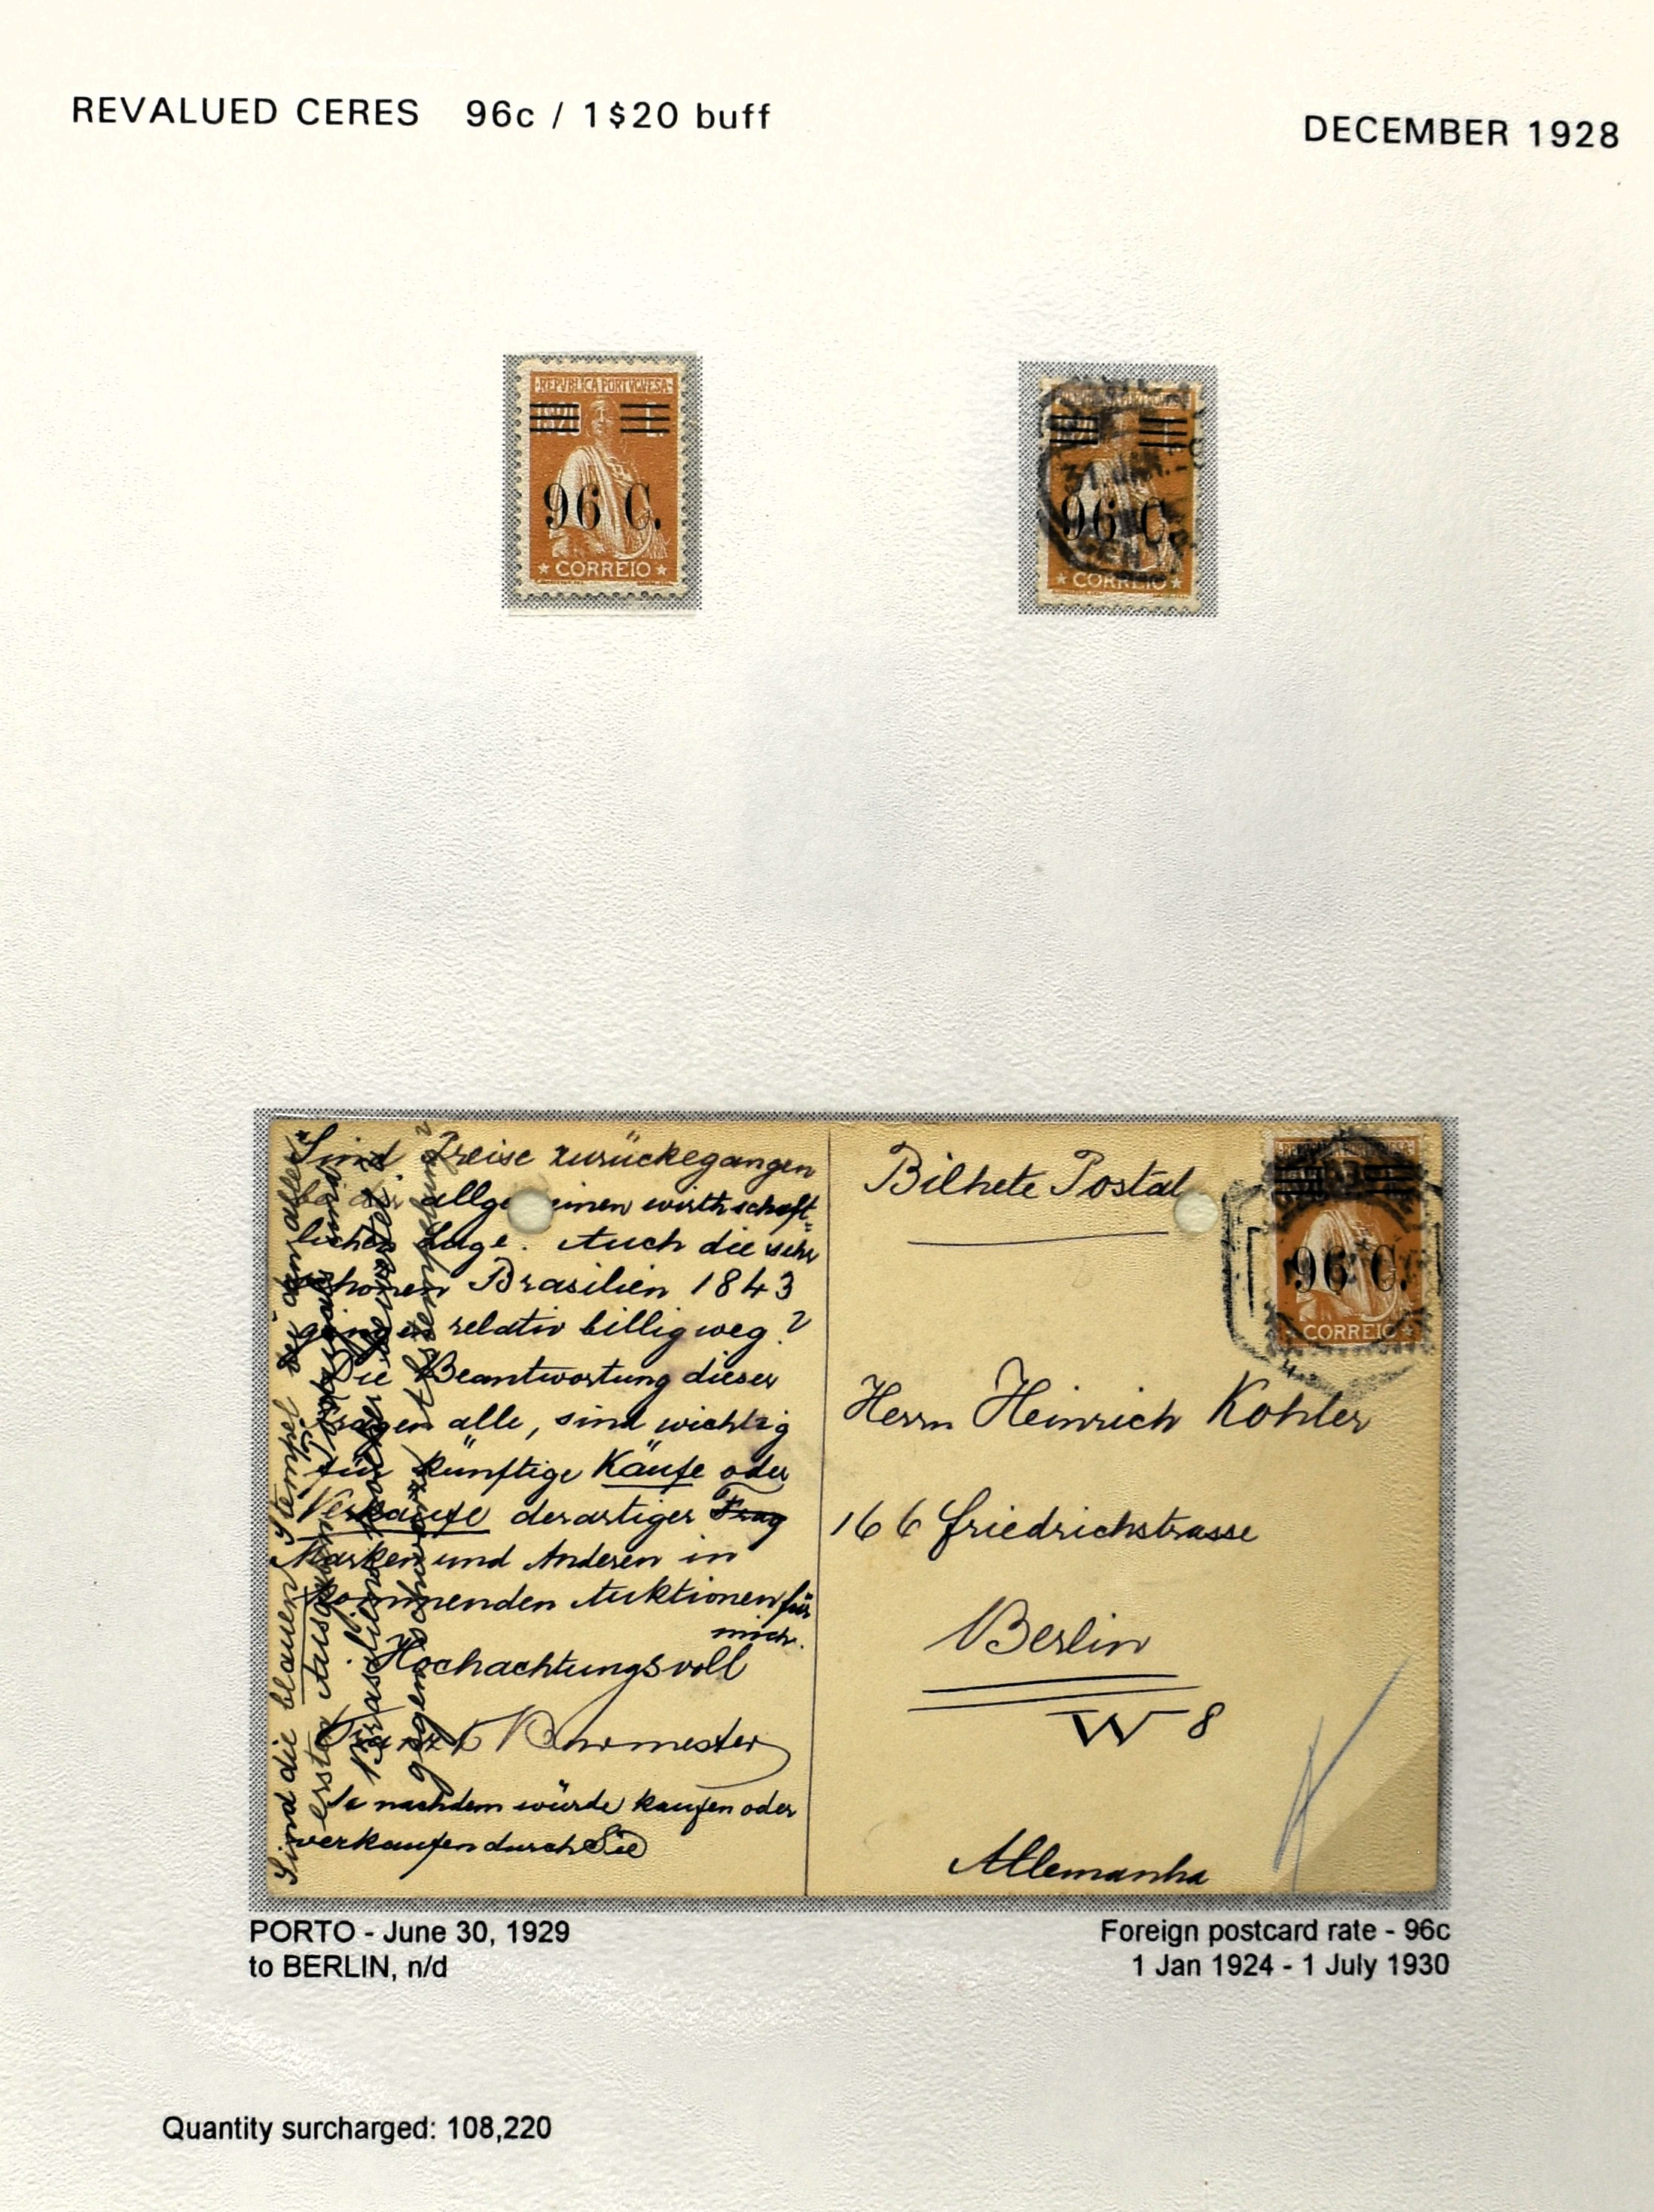 REVALUED CERES 96c / 1$20 buff
DECEMBER 1928
REPVBLICA PORTVGVESA
96 C.
CORREIO
31
96 C.
CORREIO
Sind Preise zurückegangen
bei der allgemeinen wirthschaft-
lichen Lage. Auch die sehr
schönen Brasilien 1843
gingen relativ billig weg?
Die Beantwortung dieser
Fragen alle, sind wichtig
für künftige Käufe oder
Verkäufe derartiger Frag
Marken und Anderen in
kommenden Auktionen für
mich.
Hochachtungsvoll
Burmester
Je nachdem würde kaufen oder
verkaufen durch Sie
Sind die blauen Stempel bei dem allen
erste Ausgaben
Brasilien
gegen schwarze
Bilhete Postal
96 C.
CORREIO
Herrn Heinrich Köhler
166 Friedrichstrasse
Berlin
W 8
Allemanha
PORTO - June 30, 1929
to BERLIN, n/d
Foreign postcard rate - 96c
1 Jan 1924 - 1 July 1930
Quantity surcharged: 108,220